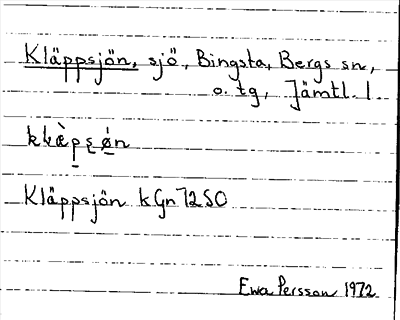 Kläppsjön, sjö, Bingsta, Bergs sn,
o. tg, Jämtl. l.
Kläppsjön kGn72SO
Ewa Persson 1972